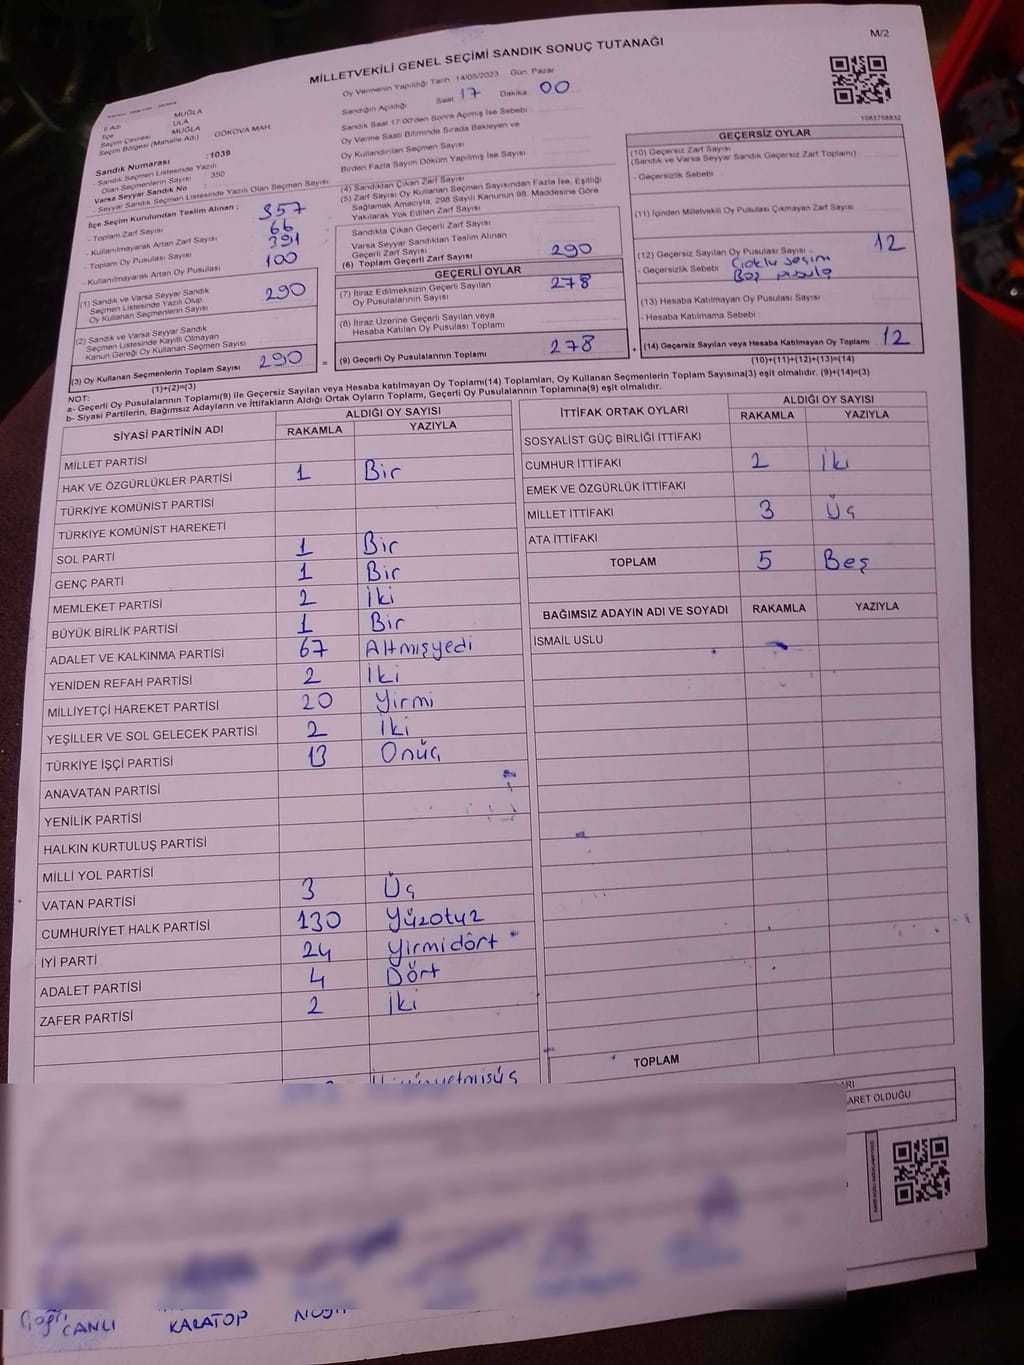 M/2
MİLLETVEKİLİ GENEL SEÇİMİ SANDIK SONUÇ TUTANAĞI
Oy Vermenin Yapıldığı Tarih 14/05/2023 Gün: Pazar
Sandığın Açıldığı Saat 17 Dakika 00
Sandık Saat 17:00'den Sonra Açılmış İse Sebebi
Oy Verme Saati Bitiminde Sırada Bekleyen ve
Oy Kullandırılan Seçmen Sayısı
Birden Fazla Sayım Döküm Yapılmış İse Sayısı
1083758832
İl Adı MUĞLA
İlçe ULA
Seçim Çevresi MUĞLA
Seçim Bölgesi (Mahalle Adı) GÖKOVA MAH.
Sandık Numarası : 1039
- Sandık Seçmen Listesinde Yazılı
Olan Seçmenlerin Sayısı : 350
Varsa Seyyar Sandık No
- Seyyar Sandık Seçmen Listesinde Yazılı Olan Seçmen Sayısı
İlçe Seçim Kurulundan Teslim Alınan :
- Toplam Zarf Sayısı 357
- Kullanılmayarak Artan Zarf Sayısı 66
- Toplam Oy Pusulası Sayısı 391
- Kullanılmayarak Artan Oy Pusulası 100
(1) Sandık ve Varsa Seyyar Sandık
Seçmen Listesinde Yazılı Olup
Oy Kullanan Seçmenlerin Sayısı 290
(2) Sandık ve Varsa Seyyar Sandık
Seçmen Listesinde Kayıtlı Olmayan
Kanun Gereği Oy Kullanan Seçmen Sayısı
(3) Oy Kullanan Seçmenlerin Toplam Sayısı 290
(1)+(2)=(3)
(4) Sandıktan Çıkan Zarf Sayısı
(5) Zarf Sayısı Oy Kullanan Seçmen Sayısından Fazla İse, Eşitliği
Sağlamak Amacıyla, 298 Sayılı Kanunun 98. Maddesine Göre
Yakılarak Yok Edilen Zarf Sayısı
Sandıkta Çıkan Geçerli Zarf Sayısı
Varsa Seyyar Sandıktan Teslim Alınan
Geçerli Zarf Sayısı
(6) Toplam Geçerli Zarf Sayısı 290
GEÇERLİ OYLAR
(7) İtiraz Edilmeksizin Geçerli Sayılan
Oy Pusulalarının Sayısı 278
(8) İtiraz Üzerine Geçerli Sayılan veya
Hesaba Katılan Oy Pusulası Toplamı
= (9) Geçerli Oy Pusulalarının Toplamı 278
GEÇERSİZ OYLAR
(10) Geçersiz Zarf Sayısı
(Sandık ve Varsa Seyyar Sandık Geçersiz Zarf Toplamı)
- Geçersizlik Sebebi
(11) İçinden Milletvekili Oy Pusulası Çıkmayan Zarf Sayısı
(12) Geçersiz Sayılan Oy Pusulası Sayısı 12
- Geçersizlik Sebebi Çoklu seçim
Boş pusula
(13) Hesaba Katılmayan Oy Pusulası Sayısı
- Hesaba Katılmama Sebebi
+ (14) Geçersiz Sayılan veya Hesaba Katılmayan Oy Toplamı 12
(10)+(11)+(12)+(13)=(14)
NOT:
a- Geçerli Oy Pusulalarının Toplamı(9) ile Geçersiz Sayılan veya Hesaba katılmayan Oy Toplamı(14) Toplamları, Oy Kullanan Seçmenlerin Toplam Sayısına(3) eşit olmalıdır. (9)+(14)=(3)
b- Siyasi Partilerin, Bağımsız Adayların ve İttifakların Aldığı Ortak Oyların Toplamı, Geçerli Oy Pusulalarının Toplamına(9) eşit olmalıdır.
SİYASİ PARTİNİN ADI ALDIĞI OY SAYISI
RAKAMLA YAZIYLA
MİLLET PARTİSİ
HAK VE ÖZGÜRLÜKLER PARTİSİ 1 Bir
TÜRKİYE KOMÜNİST PARTİSİ
TÜRKİYE KOMÜNİST HAREKETİ
SOL PARTİ 1 Bir
GENÇ PARTİ 1 Bir
MEMLEKET PARTİSİ 2 İki
BÜYÜK BİRLİK PARTİSİ 1 Bir
ADALET VE KALKINMA PARTİSİ 67 Altmışyedi
YENİDEN REFAH PARTİSİ 2 İki
MİLLİYETÇİ HAREKET PARTİSİ 20 Yirmi
YEŞİLLER VE SOL GELECEK PARTİSİ 2 İki
TÜRKİYE İŞÇİ PARTİSİ 13 Onüç
ANAVATAN PARTİSİ
YENİLİK PARTİSİ
HALKIN KURTULUŞ PARTİSİ
MİLLİ YOL PARTİSİ
VATAN PARTİSİ 3 Üç
CUMHURİYET HALK PARTİSİ 130 Yüzotuz
İYİ PARTİ 24 Yirmidört
ADALET PARTİSİ 4 Dört
ZAFER PARTİSİ 2 İki
İTTİFAK ORTAK OYLARI ALDIĞI OY SAYISI
RAKAMLA YAZIYLA
SOSYALİST GÜÇ BİRLİĞİ İTTİFAKI
CUMHUR İTTİFAKI 2 İki
EMEK VE ÖZGÜRLÜK İTTİFAKI
MİLLET İTTİFAKI 3 Üç
ATA İTTİFAKI
TOPLAM 5 Beş
BAĞIMSIZ ADAYIN ADI VE SOYADI RAKAMLA YAZIYLA
İSMAİL USLU
TOPLAM
ARET OLDUĞU
CANLI KARATOP